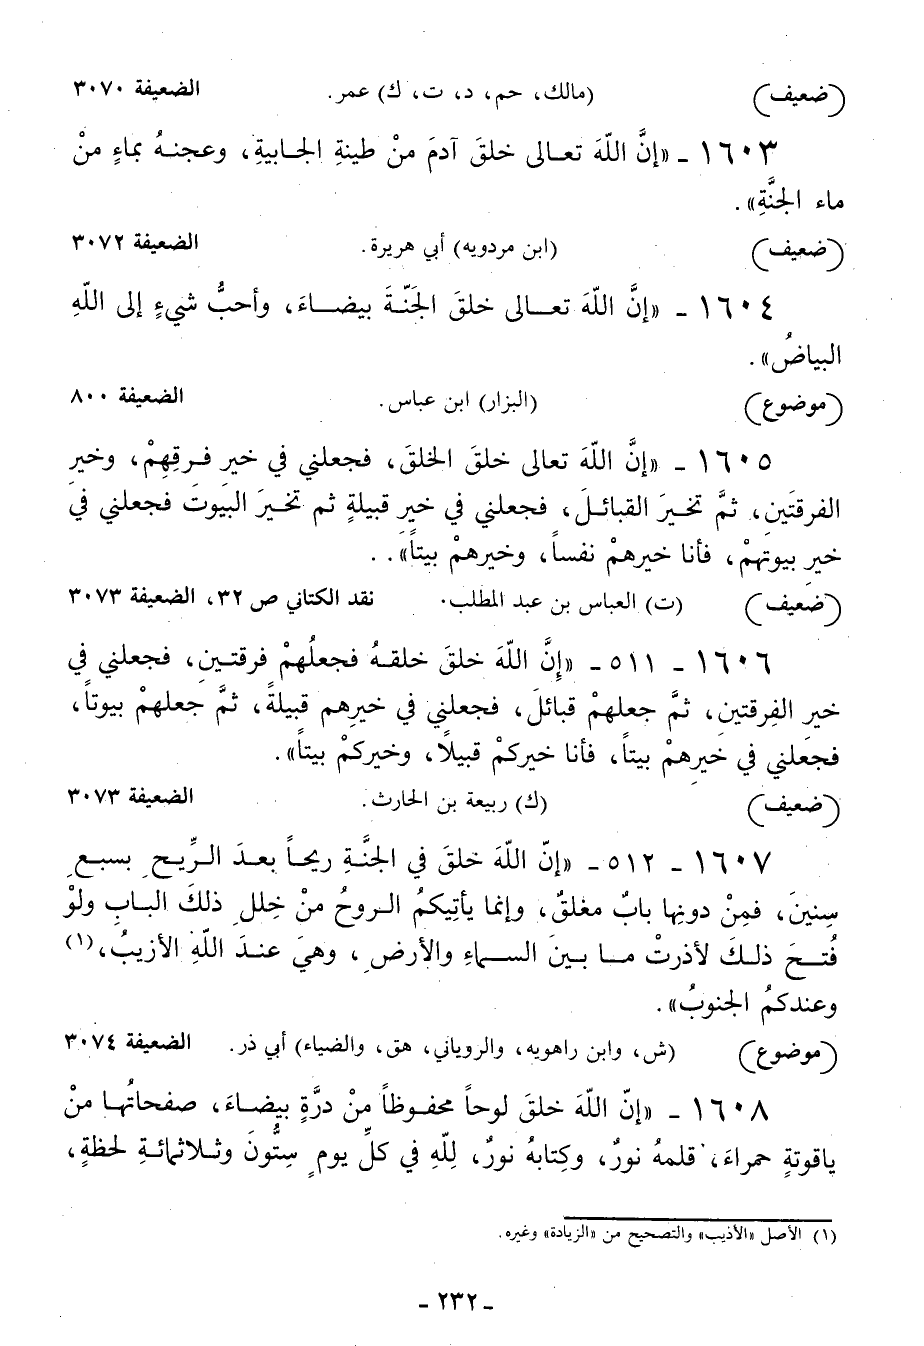 (ضعيف) (مالك، حم، د، ت، ك) عمر. الضعيفة ٣٠٧٠
١٦٠٣ ـ «إنَّ اللّهَ تعـالى خلقَ آدمَ منْ طينةِ الجـابيةِ، وعجنـهُ بماءٍ منْ
ماء الجنَّةِ».
(ضعيف) (ابن مردويه) أبي هريرة. الضعيفة ٣٠٧٢
١٦٠٤ ـ «إنَّ اللّهَ تعـالى خلقَ الجَنّـةَ بيضـاءَ، وأحبُّ شيءٍ إلى اللّهِ
البياضُ».
(موضوع) (البزار) ابن عباس. الضعيفة ٨٠٠
١٦٠٥ ـ «إنَّ اللّهَ تعالى خلقَ الخلقَ، فجعلني في خيرِ فـرقِهِمْ، وخيرِ
الفرقتَينِ، ثمَّ تخيرَ القبائـلَ، فجعلني في خيرِ قبيلةٍ ثم تخـيرَ البيوتَ فجعلني في
خيرِ بيوتهمْ، فأنا خيرهمْ نفساً، وخيرهمْ بيتاً». .
(ضعيف) (ت) العباس بن عبد المطلب. نقد الكتاني ص ٣٢، الضعيفة ٣٠٧٣
١٦٠٦ ـ ٥١١ ـ «إِنَّ اللّهَ خلقَ خلقـهُ فجعلُهمْ فرقتـينِ، فجعلني في
خيرِ الفِرقتينِ، ثمَّ جعلهمْ قبائلَ، فجعلني في خيرِهم قبيلةً، ثمَّ جعلهمْ بيوتاً،
فجعلني في خيرِهمْ بيتاً، فأنا خيركمْ قبيلًا، وخيركمْ بيتاً».
(ضعيف) (ك) ربيعة بن الحارث. الضعيفة ٣٠٧٣
١٦٠٧ ـ ٥١٢ ـ «إنّ اللّهَ خلقَ في الجنَّةِ ريحـاً بعـدَ الـرِّيـحِ بسبـعِ
سِنينَ، فمِنْ دونِها بابٌ مغلقٌ، وإنما يأتِيكمُ الـروحُ منْ خِللِ ذلكَ البـابِ ولوْ
فُتـحَ ذلـكَ لأذرتْ مـا بـينَ السـماءِ والأرضِ، وهيَ عنـدَ اللّهِ الأزيبُ،(١)
وعندكمُ الجنوبُ».
(موضوع) (ش، وابن راهويه، والروياني، هق، والضياء) أبي ذر. الضعيفة ٣٠٧٤
١٦٠٨ ـ «إنّ اللّهَ خلقَ لوحاً محفـوظاً منْ درَّةٍ بيضـاءَ، صفحاتُهـا منْ
ياقوتةٍ حمراءَ، قلمهُ نورٌ، وكِتابهُ نورٌ، لِلّهِ في كلِّ يومٍ سِتُّونَ وثـلاثمائـةِ لحظةٍ،
(١) الأصل «الأذيب» والتصحيح من «الزيادة» وغيره.
ـ ٢٣٢ ـ